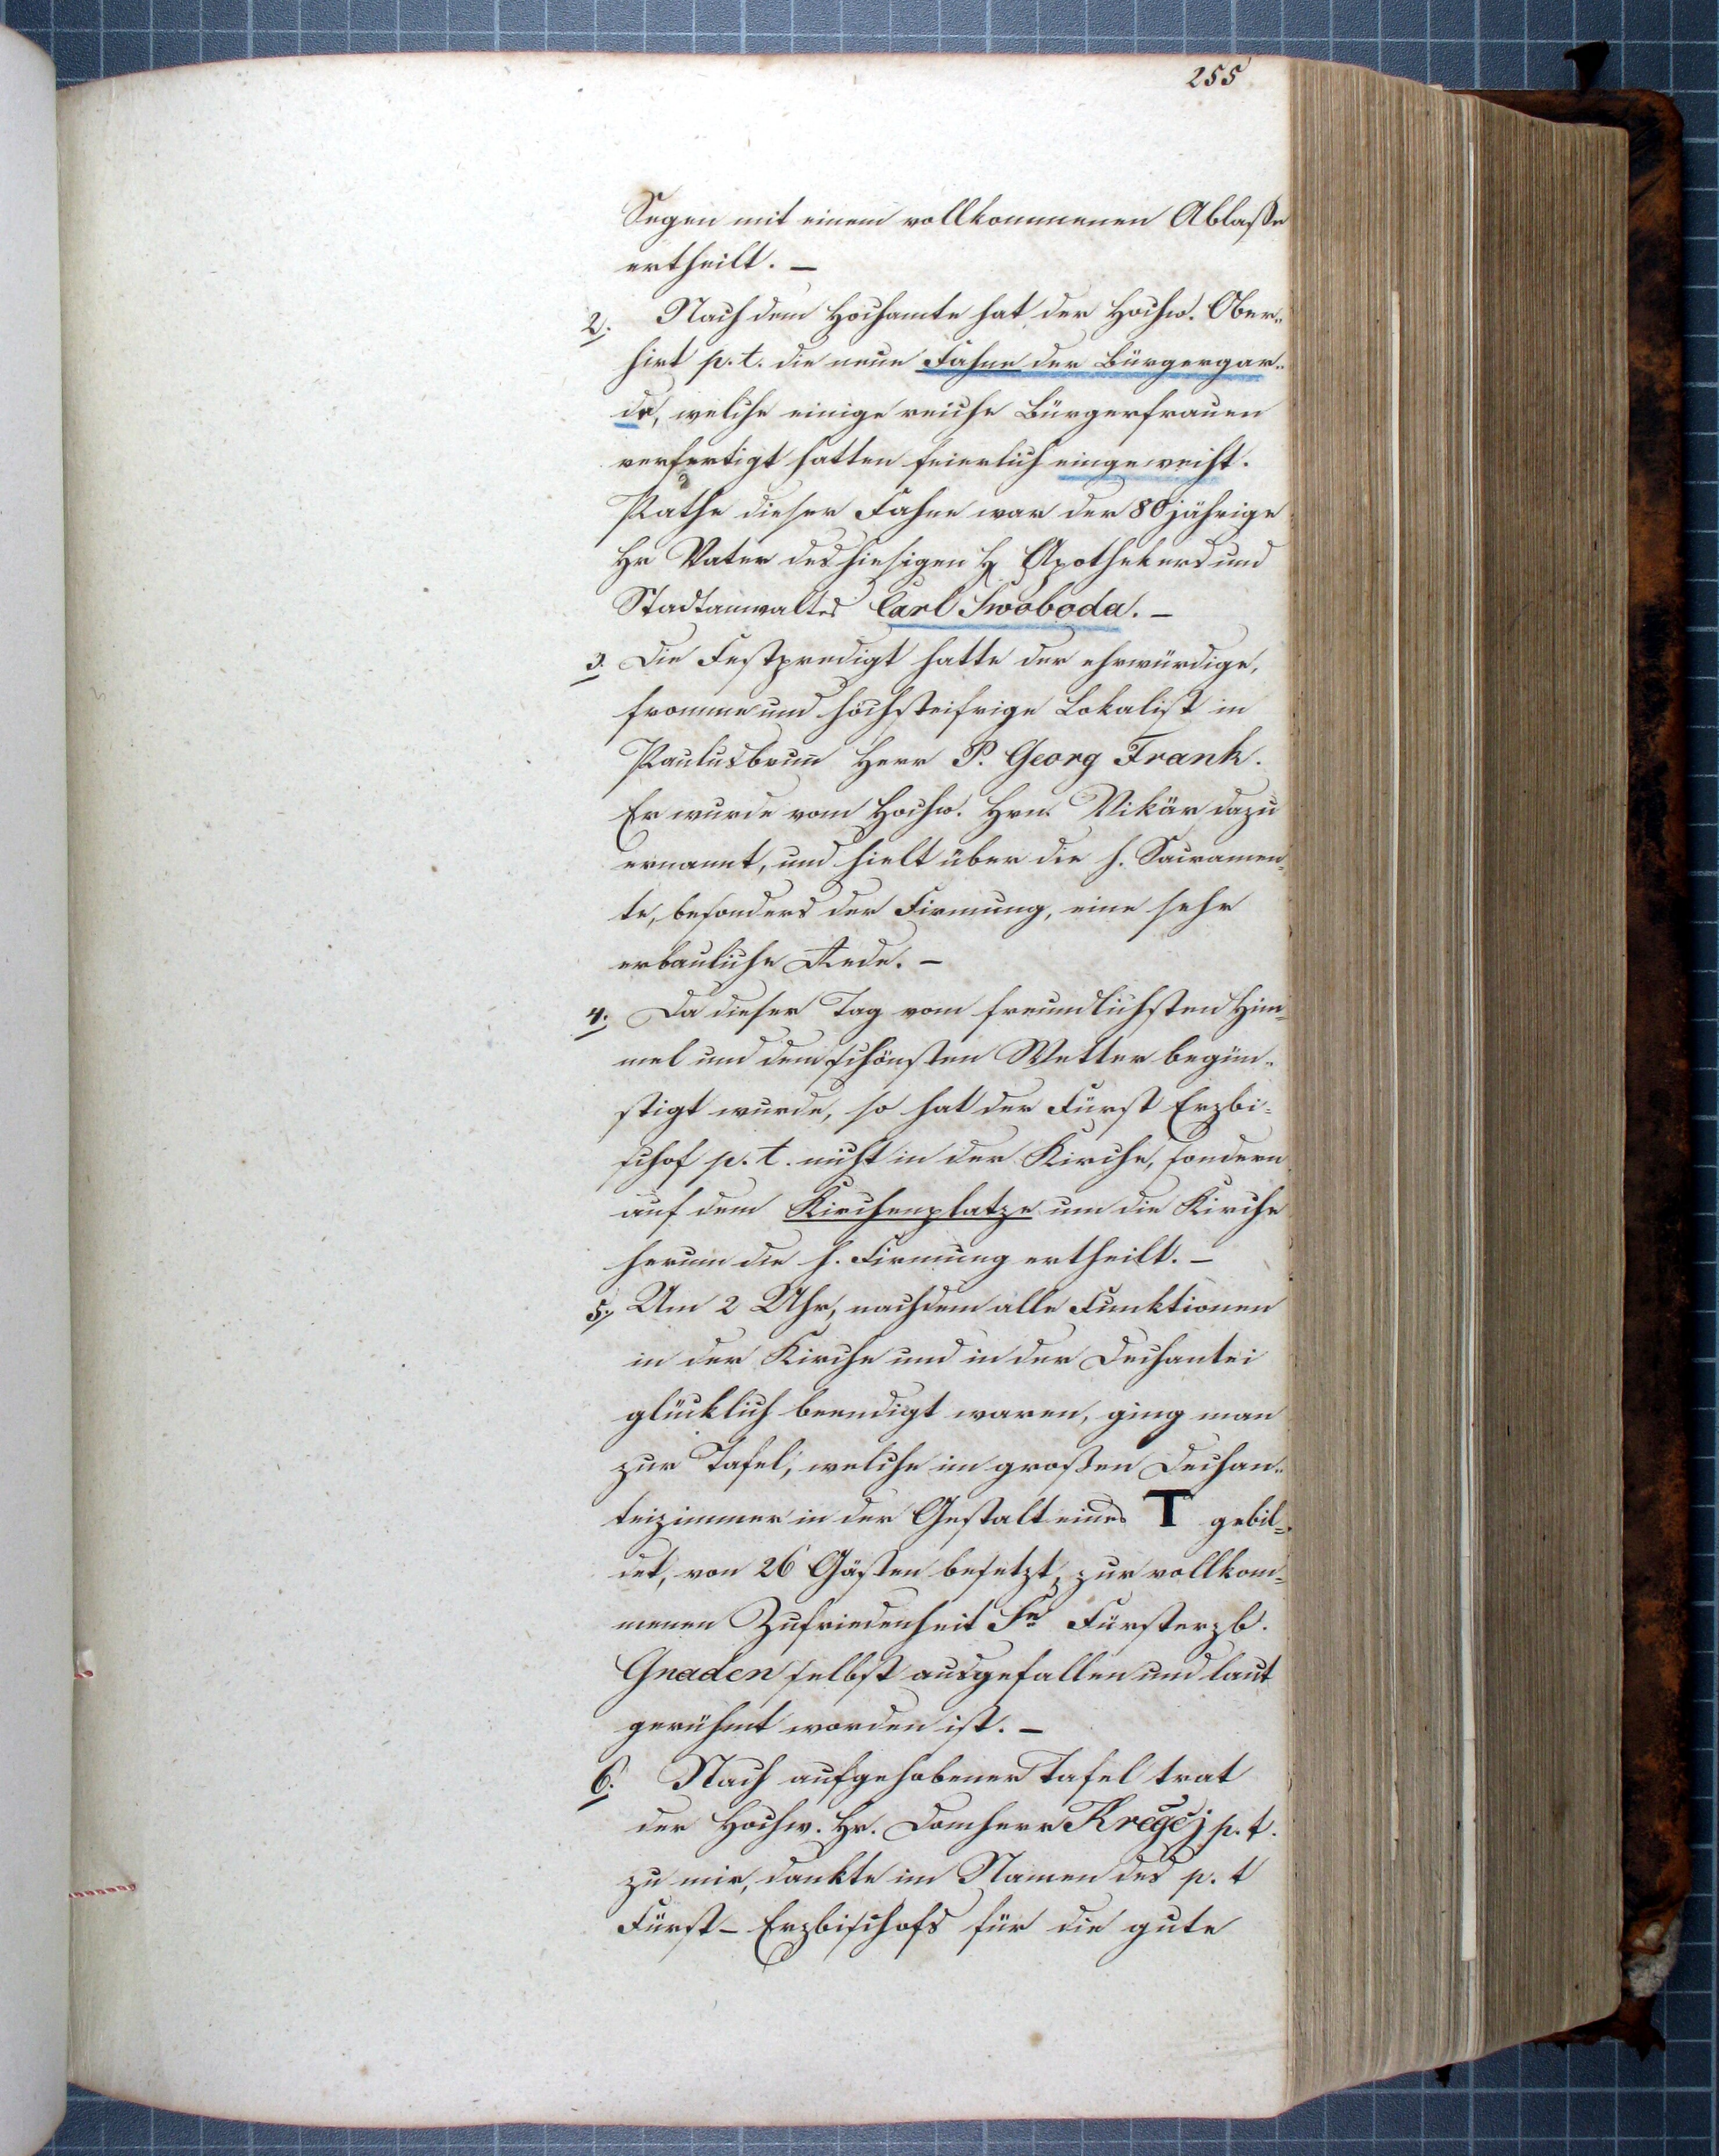 255
Segen mit einem vollkommenen Ablaße
ertheilt. –
2. Nach dem Hochamte hat der Hochw. Ober-
hirt p. t. die neue Fahne der Bürgergar-
de, welche einige reiche Bürgerfrauen
verfertigt hatten feierlich eingeweiht.
Pathe dieser Fahne war der 80jährige
Hr Vater des hiesigen H Apothekers und
Stadtanwaltes Carl Swoboda. –
3. Die Festpredigt hatte der ehrwürdige,
fromme und höchsteifrige Lokalist in
Paulusbrunn Herr P. Georg Frank.
Er wurde vom Hochw. Hrn. Vikär dazu
ernannt, und hielt über die h. Sacramen-
te, besonders der Firmung, eine sehr
erbauliche Rede. –
4. Da dieser Tag vom freundlichsten Him-
mel und dem schönsten Wetter begün-
stigt wurde, so hat der Fürst Erzbi-
schof p. t. nicht in der Kirche, sondern
auf dem Kirchenplatze um die Kirche
herum die h. Firmung ertheilt. –
5. Um 2 Uhr, nachdem alle Funktionen
in der Kirche und in der Dechantei
glücklich beendigt waren, ging man
zur Tafel, welche im großen Dechan-
teizimmer in der Gestalt eines T gebil-
det, von 26 Gästen besetzt, zur vollkom-
menen Zufriedenheit Sr Fürsterzb.
Gnaden selbst ausgefallen und laut
gerühmt worden ist. –
6. Nach aufgehobener Tafel trat
der Hochw. Hr. Domherr Kregčj p. t.
zu mir, dankte im Namen des p. t
Fürst-Erzbischofs für die gute